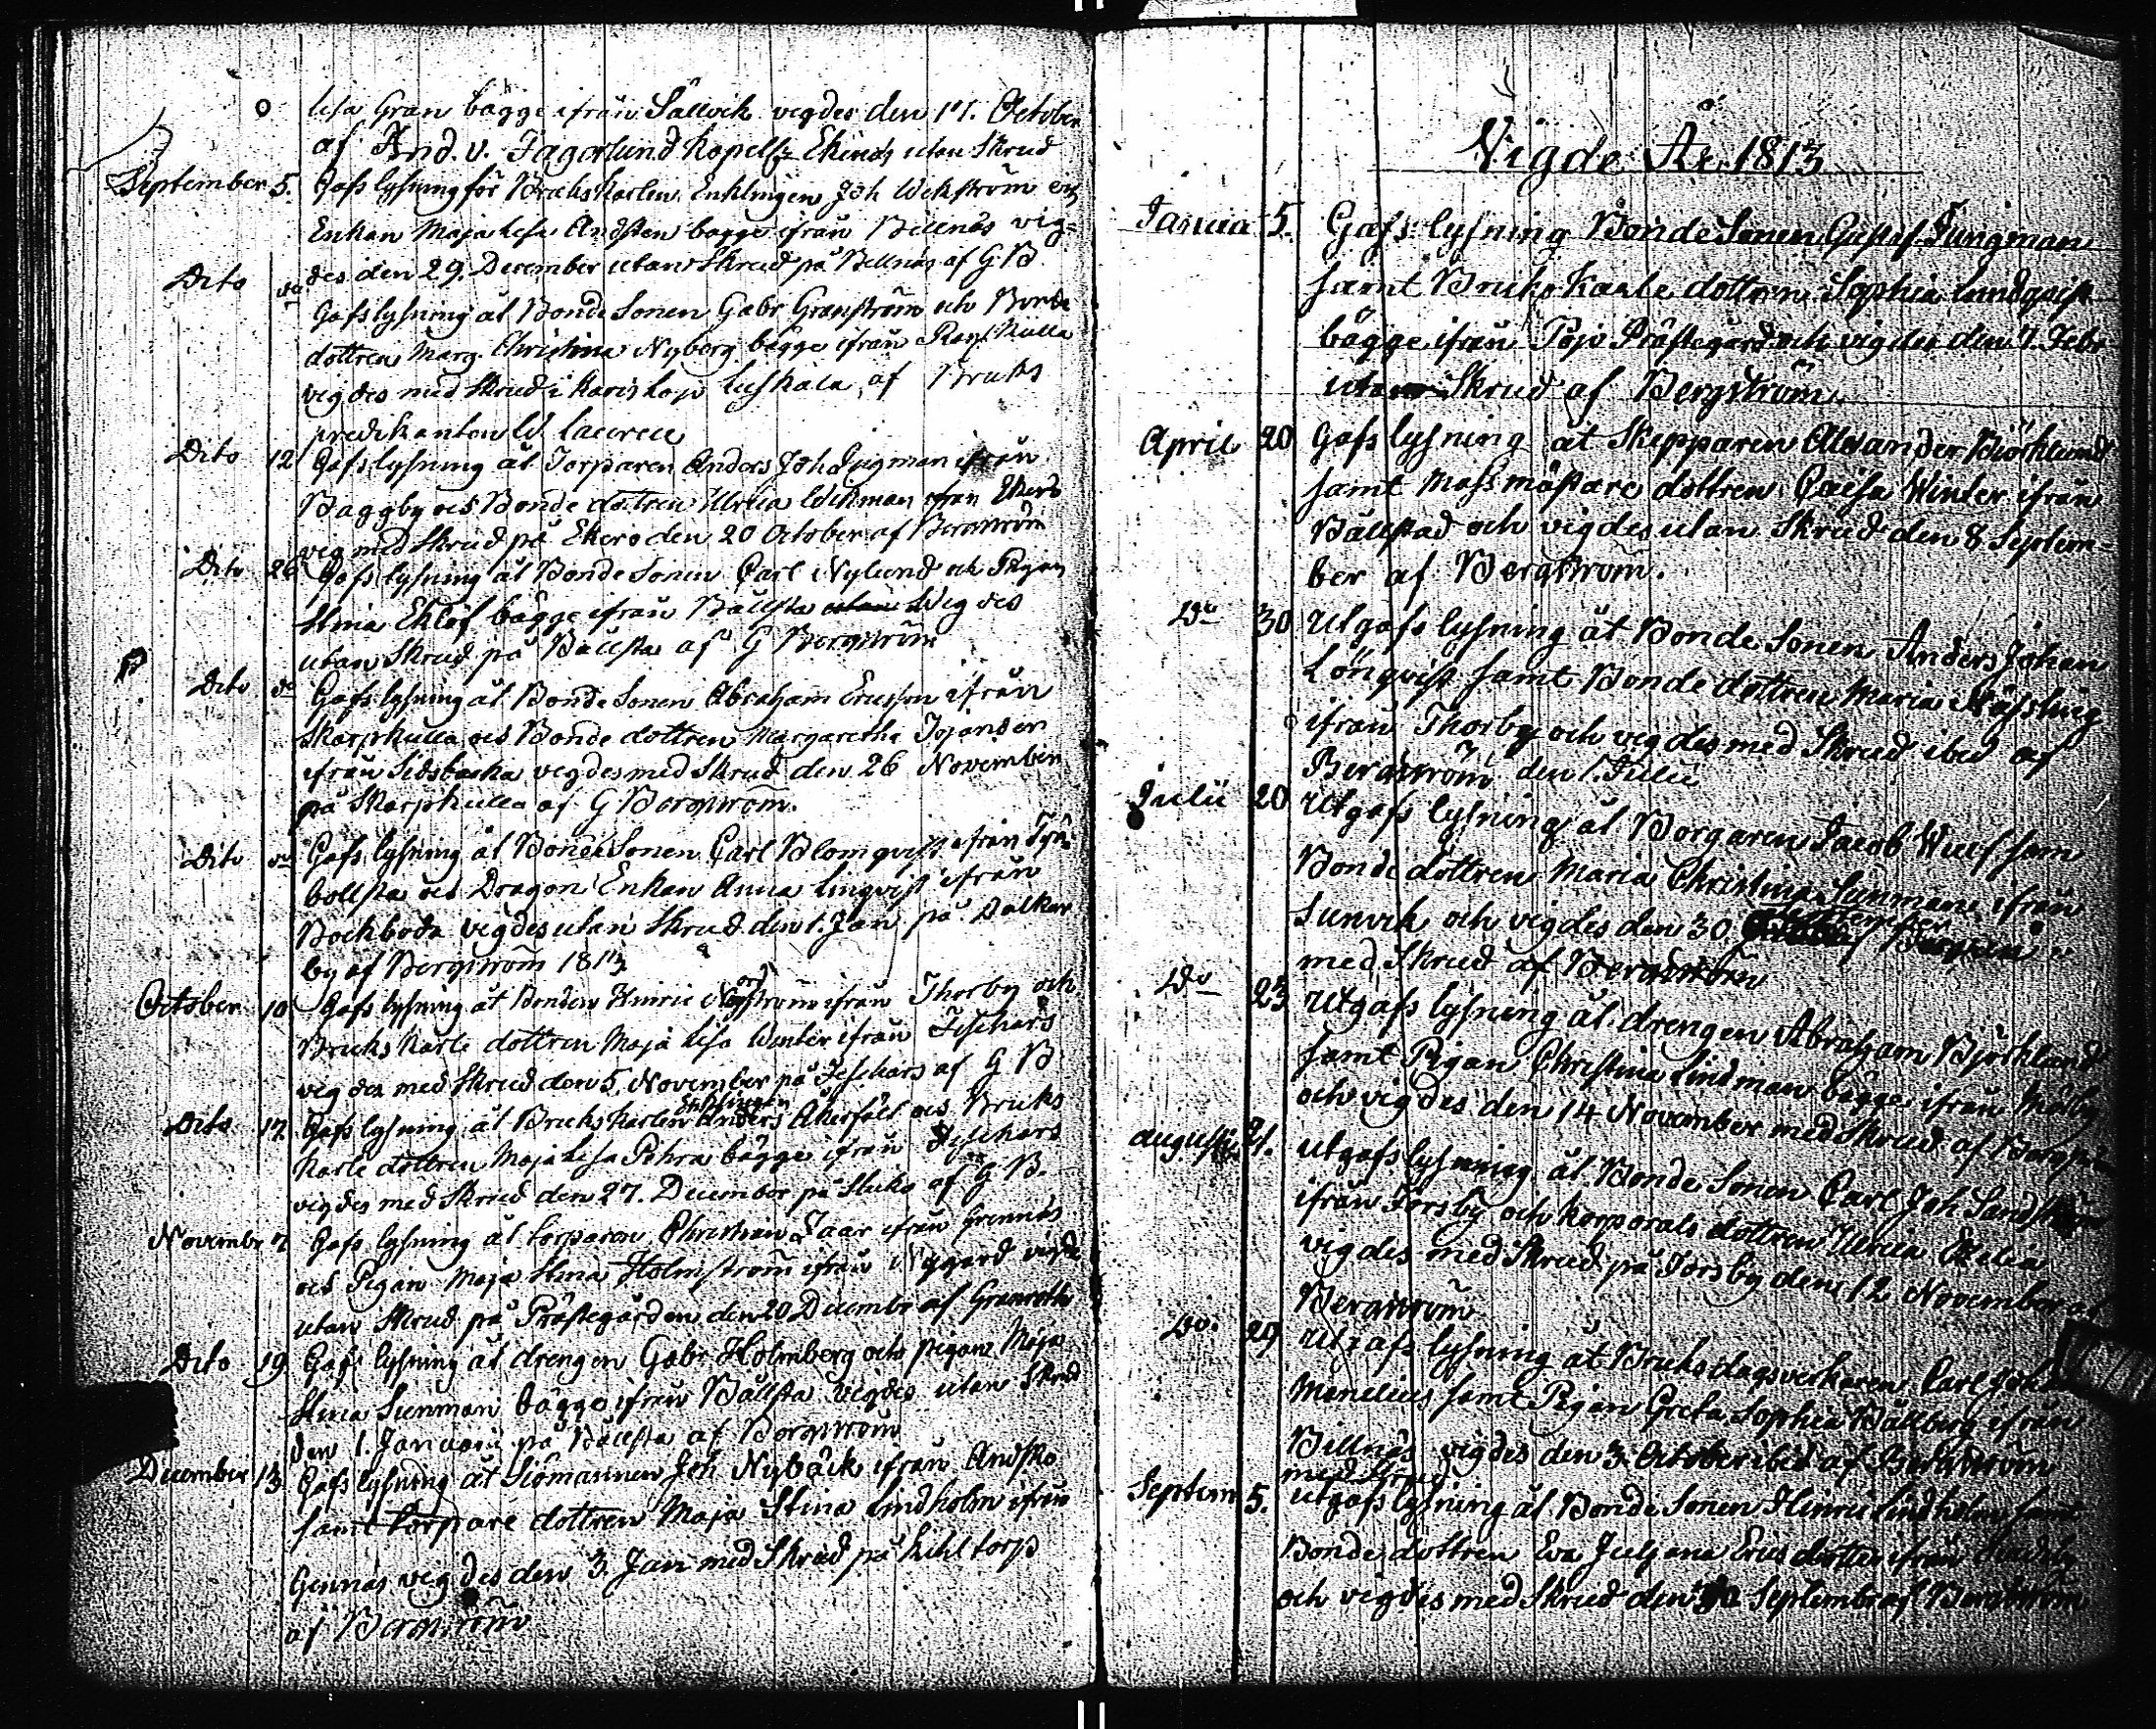 Lisa Gran bägge ifrån Sällvik vigdes den 17. October
af And. v. Fagerlund Kapell: Ekenäs utan Skrud
September 5. Gafs lysning för Brukskarlen Enklingen Joh Wekström och
Enkan Maja Lisa Andsten bägge ifrån Billnäs vig=
des den 29. December utan Skrud på Billnäs af G. B
Dito do Gafs lysning åt Bonde Sonen Gabr Granström och Bonde
dottren Marg. Christina Nyberg bägge ifrån
vigdes med Skrud i Karis Lojo af Bruks
predikanten
Dito 12 Gafs lysning åt Torparen Anders Joh ifrån
Baggby och Bonde dottren Ulrica Wikman ifrån Ekerö
vig med Skrud på Ekerö den 20 October af Bergström
Dito 26 Gafs lysning åt Bonde Sonen Carl Nylund och Pigan
Stina Eklöf bägge ifrån Bällsta Vigdes
utan Skrud på Bällsta af G Bergström
Dito do Gafs lysning åt Bonde Sonen Abraham Ericsson ifrån
Skarpkulla och Bonde dottren Margaretha
ifrån Sidsbacka vigdes med Skrud den 26 November
på Skarpkulla af G Bergström.
Dito do Gafs lysning åt Bonde Sonen Carl Blomqvist ifrån
bollsta och Dragon Enkan Anna Linqvist ifrån
Bockboda vigdes utan Skrud den 1. Jan på Dalkar
by af Bergström 1813
October 10 Gafs lysning åt Bonden Hinric ifrån Thorby och
Bruks Karls dottren Maja Lisa Winter ifrån Fiskars
vigdes med Skrud den 5. November på Fiskars af G B
Enklingen
Dito 17. Gafs lysning åt Bruks Karlen Anders Åkerfält och Bruks
Karls dottren Maja Lisa Pihra bägge ifrån Fiskars
vigdes med Skrud den 27. December på af G B.
Novembr 7 Gafs lysning åt torparen Christian Faar ifrån Grennäs
och Pigan Maja Stina Holmström ifrån Nygård vigde
utan Skrud på Prästegården den 20 Decembr af Granroth
Dito 19 Gafs lysning åt drengen Gabr Holmberg och pigan Maja
Stina Sunman bägge ifrån Bällsta vigdes utan Skrud
den 1. Januarii på Bällsta af Bergström
December 13. Gafs lysning åt Siömannen Joh Nybäck ifrån
samt torpare dottren Maja Stina Lindholm ifrån
Gennäs vigdes den 3. Jan med Skrud på torp
af Bergström
Vigde År 1813
Janua 5. Gafs lysning Bonde Sonen Gustaf Jungman
samt Bruks Karls dottren Sophia Lundqvist
bägge ifrån Pojo Prästegård och vigdes den 7. Febr
utan Skrud af Bergström
April 20 Gafs lysning åt Skepparen Alexander Björklund
samt Massmästare dottren Caisa Winter ifrån
Bällstad och vigdes utan Skrud den 8 Septem=
ber af Bergström.
Do 30 Utgafs lysning åt Bonde Sonen Anders Johan
Lönqvist samt Bonde dottren Maria
ifrån Thorby och vigdes med Skrud ibid af
Bergström den 1. Julii
Julii 20 Utgafs lysning åt Borgaren Jacob Wulf sam
Bonde dottren Maria Christina Sunman ifrån
Sunvik och vigdes den 30. September
med Skrud af Bergström
Do 23 Utgafs lysning åt drengen Abraham Björklund
samt Pigan Christina Lindman bägge ifrån Mälby
och vigdes den 14 November med Skrud af Bergst
augusti 21. Utgafs lysning åt Bonde Sonen Carl Joh Sandström
ifrån Forsby och Korporals dottren Ulrica
vigdes med Skrud på Forsby den 12 November af
Bergström
Do 29 Utgafs lysning åt Bruks dagsverkaren Carl Joh
Manelius samt Pigan Greta Sophia Bällberg ifrån
Billnäs vigdes den 3. October ibid af Bergström
med Skrud
Septem 5. Utgafs lysning åt Bonde Sonen Hinric Lindholm samt
Bonde dottren Eva Juljana Erics dotter ifrån
och vigdes med Skrud den 30 September af Bergström